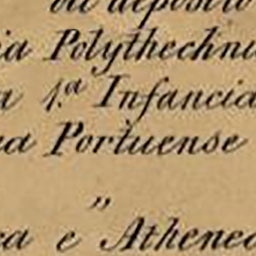 ou deposito
ia Polythechni
a 1.ª Infancia
ea Portuense
"
ca e Atheneo